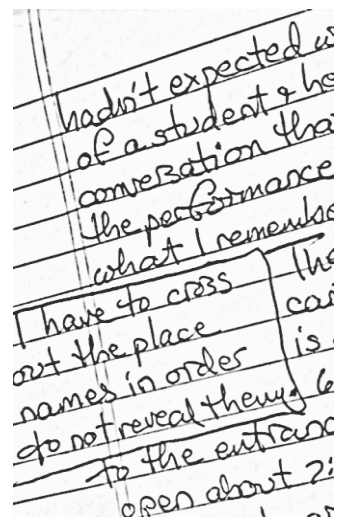 hadn't expected
of a student & he
conversation tha
the performance
what I remembe
I have to cross
out the place
names in order
to not reveal them.
The
car
is
to the entranc
open about 2: